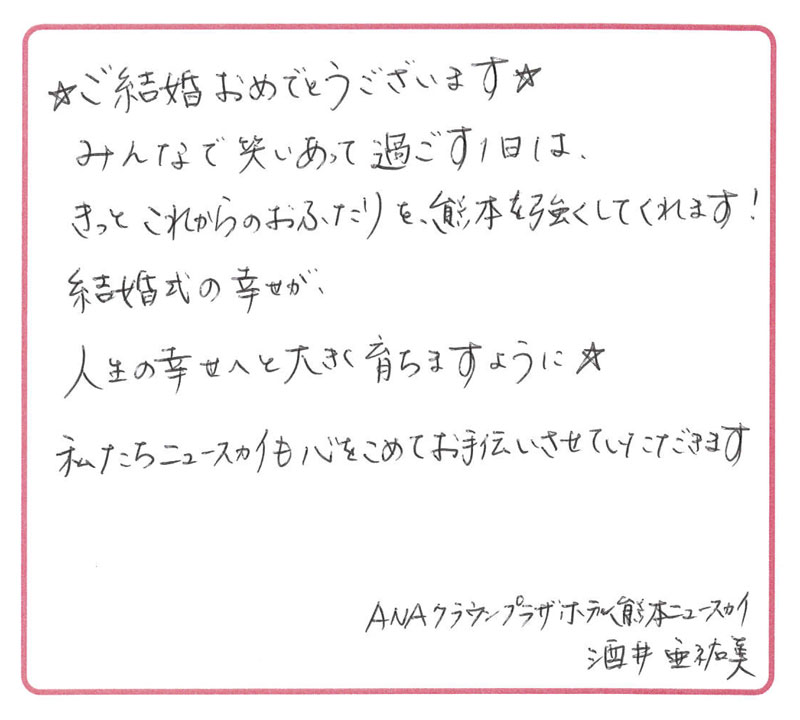 ☆ご結婚おめでとうございます☆
みんなで笑いあって過ごす1日は、
きっとこれからのおふたりを、熊本を強くしてくれます!
結婚式の幸せが、
人生の幸せへと大きく育ちますように☆
私たちニュースカイも心をこめてお手伝いさせていただきます
ANAクラウンプラザホテル熊本ニュースカイ
酒井亜祐美